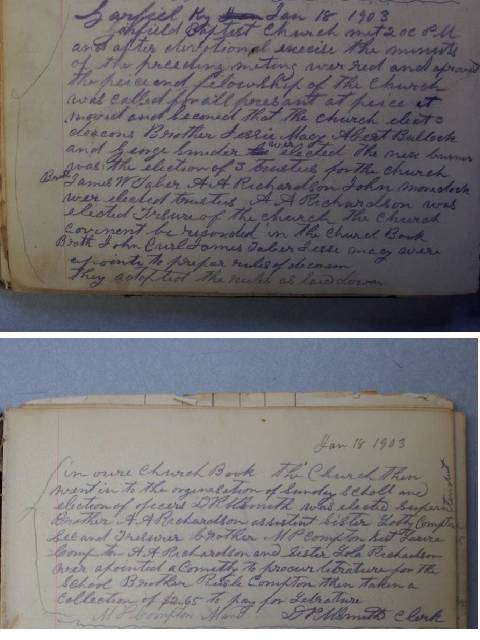 Garfield Ky Jan 18, 1903
Garfield Baptist Church met 2 oc P.M
and after devotional exceise the minuts
of the preceding meting wer red and aproved
the peice and fellowship of the Church
was called for all presant at peice it
moved and seconed that the church elect 3
deacons Brother Jessie Macy Abert Bullock
and George Smider wer elected the nex busnes
was the election of 3 trusties for the church
Broth James W Taber A A Richardson John
wer elected trusties A A Richardson was
elected Tresure of the church the Church
covinent be reqorded in the Church Book
Broth John Curl James Taber Jesse macy were
apointe to prepar rules of decorum
they adopted the rules as laid down
Jan 18 1903
in oure Church Book the Church then
went in to the orgenisation of Sunday Scholl and
election of officers was elected Superntendent
Brother A A Richardson assistent Sister Compton
Sec and Tresurer brother M P Compton Sist Laura
Compton A A Richardson and Sister Richadson
wer apointed a Comitty to procur litrature for the
School Brother Compton then taken a
collection of $2.65 to pay for Letrature
M P Compton Mand Clerk